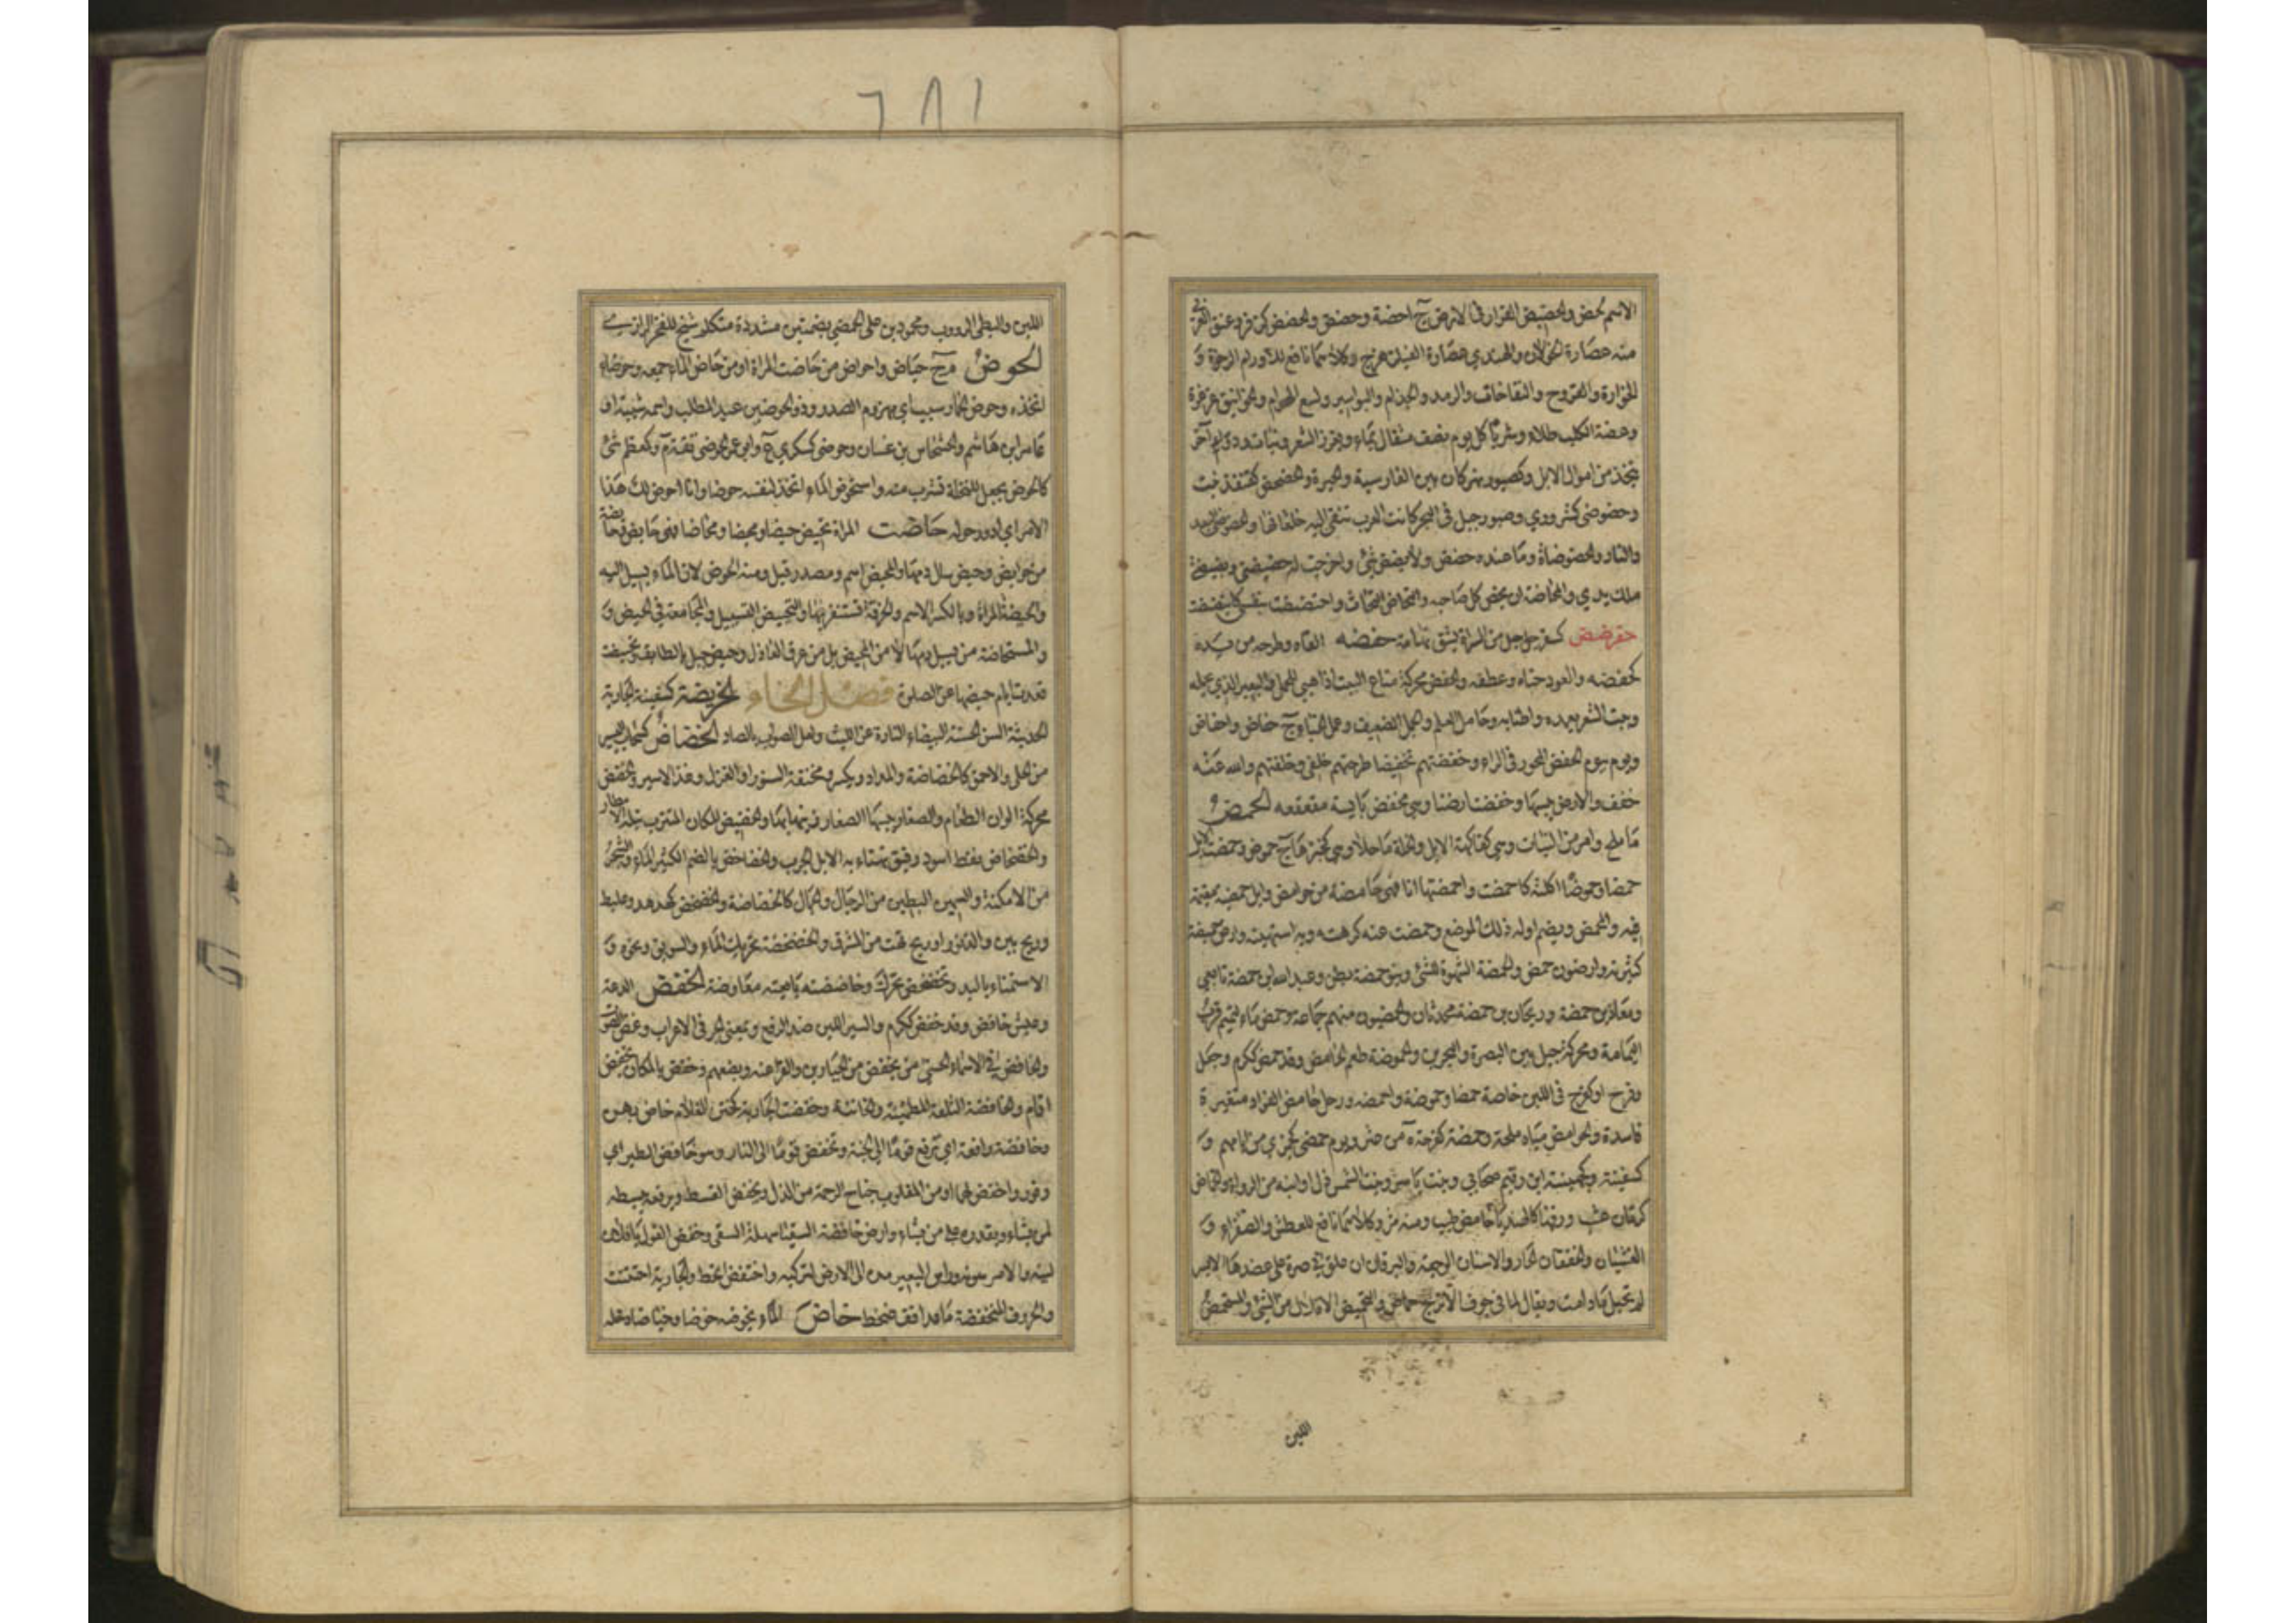 الاسم كحض والحضيض القرار فى الارض ج احضة وحضض والحضض كزفر وعنق العربى
منه عصارة الخولان والهندى عصارة الفيلزهرج وكلاهما نافع للاورام الرخوة و
الخوارة والقروح والنفاخات والرمد والجذام والبواسير ولسع الهوام والخوانيق غرغرة
وعضة الكلب طلاء وشربا كل يوم نصف مثقال بماء ويغزر الشعر ودواء آخر
يتخذ من ابوال الابل وكصبور نهر كان بين القادسية والحيرة والحضحض كقنفذ نبت
وحضوضى كشرورى وصبور جبل فى البحر كانت العرب تنفى اليه خلعاءها والحضوضى البعد
والنار والحضوضاة وما عنده حضض ولا بضض شئ واخرجت له حضيضتى وبضيضتى
ملك يدى والمحاضة ان يحض كل صاحبه والتحاض التحاث واحتضضت نفسى
حفرضض كسفرجل جبل من السراة بشق تهامة حفضه القاه وطرحه من يده
كحفضه والعود حناه وعطفه والحفض محركة متاع البيت اذا هيئ للحمل والبعير الذى يحمله
وبيت الشعر بعمده واطنابه وحامل العلم والجمل الضعيف وعمل الخباء ج حفاض واحفاض
ويوم بيوم الحفض المجور فى الراء وحفضتهم تحفيضا طرحتهم خلفى وخلفتهم والله عنه
خفف والارض يبسها وحفضت ارضنا وهى محفض يابسة مقعقعة الحمض
ما ملح وامر من النبات وهى كفاكهة الابل والخلة ما حلا وهى كخبزها ج حموض وحمضت الابل
حمضا وحموضا اكلته كاحمضت واحمضتها انا فهى حامضة من حوامض وابل حمضية مقيمة
فيه والمحمض ويضم اوله ذلك الموضع وحمضت عنه كرهته وبه اشتهيته وارض حميضة
كثيرته وارضون حمض والحمضة الشهوة للشئ وبنو حمضة بطن وعبد الله بن حمضة تابعى
ومعاذ بن حمضة وريحان بن حمضة محدثان والحمضيون منهم جماعة وحمض ماء لتميم قرب
اليمامة ومحركة جبل بين البصرة والبحرين والحموضة طعم الحامض وقد حمض ككرم وجعل
وفرح او كفرح فى اللبن خاصة حمضا وحموضة واحمضه ورجل حامض الفؤاد متغيره
فاسده والحوامض مياه ملحة وحمضة كفرحة من عثر ويوم حمضى كجمزى من ايامهم و
كسفينة وجهينة ابن رقيم صحابى وبنت ياسر وبنت الشمردل او ابنه من الرواة والحماض
كرمان عشب ورقها كالهندبا حامض طيب ومنه مر وكلاهما نافع للعطش والصفراء و
الغثيان والخفقان الحار والاسنان الوجعة واليرقان ان علق فى صرة على عضدها الايسر
لم تحبل ما دامت ويقال لما فى جوف الاترج حماض والتحميض الاقلال من الشئ والمستحمض
اللبن
٦٨١
اللبن والبطئ الرووب ومحمود بن على الحمضى بضمتين مشددة متكلم شيخ للفخر الرازى
الحوض م ج حياض واحواض من حاضت المراة او من حاض الماء جمعه وحوضا
اتخذه وحوض الحمار سب اى مهزوم الصدر وذو الحوضين عبد المطلب واسمه شيبة او
عامر ابن هاشم والحسحاس بن غسان وحوضى كسكرى ع وابو عمر الحوضى ثقة م وكمعظم شئ
كالحوض يجعل للنخلة تشرب منه واستحوض الماء اتخذ لنفسه حوضا وانا احوض لك هذا
الامر اى ادور حوله حاضت المراة تحيض حيضا ومحيضا ومحاضا فهى حايض وحايضة
من حوايض وحيض سال دمها والمحيض اسم ومصدر قيل ومنه الحوض لان الماء يسيل اليه
والحيضة المراة وبالكسر الاسم والخرقة تستثفر بها والتحييض التسييل والمجامعة فى الحيض و
المستحاضة من يسيل دمها لا من الحيض بل من عرق العاذل وحيض جبل بالطايف وتحيضت
قعدت ايام حيضها عن الصلوة فصل الخاء الخريضة كسفينة الجارية
الحديثة السن الحسنة البيضاء التارة عن الليث ولعل الصواب بالصاد الخضاض كسحاب اليسير
من الحلى والاحمق كالخضاضة والمداد ويكسر ومخنقة السنور او الغزال وغل الاسير والخضض
محركة الوان الطعام والصغار يلبسها الصغار فيتمها والخضيض المكان المتترب تبله الامطار
والخضخاض نفط اسود رقيق يهنا به الابل الجرب والخضاخض بالضم الكثير الماء والشجر
من الامكنة والسمين البطين من الرجال والجمال كالخضاخضة والخضخض كهدهد وعلبط
وريح بين والدبور او ريح تهب من المشرق والخضخضة تحريك الماء والسويق ونحوه و
الاستمناء باليد وتخضخض تحرك وخاضضته بايعته معارضة الخفض الدعة
وعيش خافض وقد خفض ككرم والسير اللين ضد الرفع وبمعنى الجر فى الاعراب وغض الصوت
والخافض فى الاسماء الحسنى من يخفض من الجبارين والفراعنة ويضعهم وخفض بالمكان يخفض
اقام والخافضة التلعة المطمئنة والخاتنة وخفضت الجارية كختن الغلام خاص بهن
وخافضة رافعة اى ترفع قوما الى الجنة وتخفض قوما الى النار وهو خافض الطير اى
وقور واخفض لهما او من المقلوب جناح الرحمة من الذل ويخفض القسط ويرفعه يبسطه
لمن يشاء ويقدره على من يشاء وارض خافضة السقيا سهلة السقى وخفض القول يا فلان
لينه والامر هونه وراس البعير مده الى الارض لتركبه واختفض انحط والجارية اختتنت
والحروف المنخفضة ماعدا قغضخصط خاض الماء يخوضه خوضا وخياضا دخله